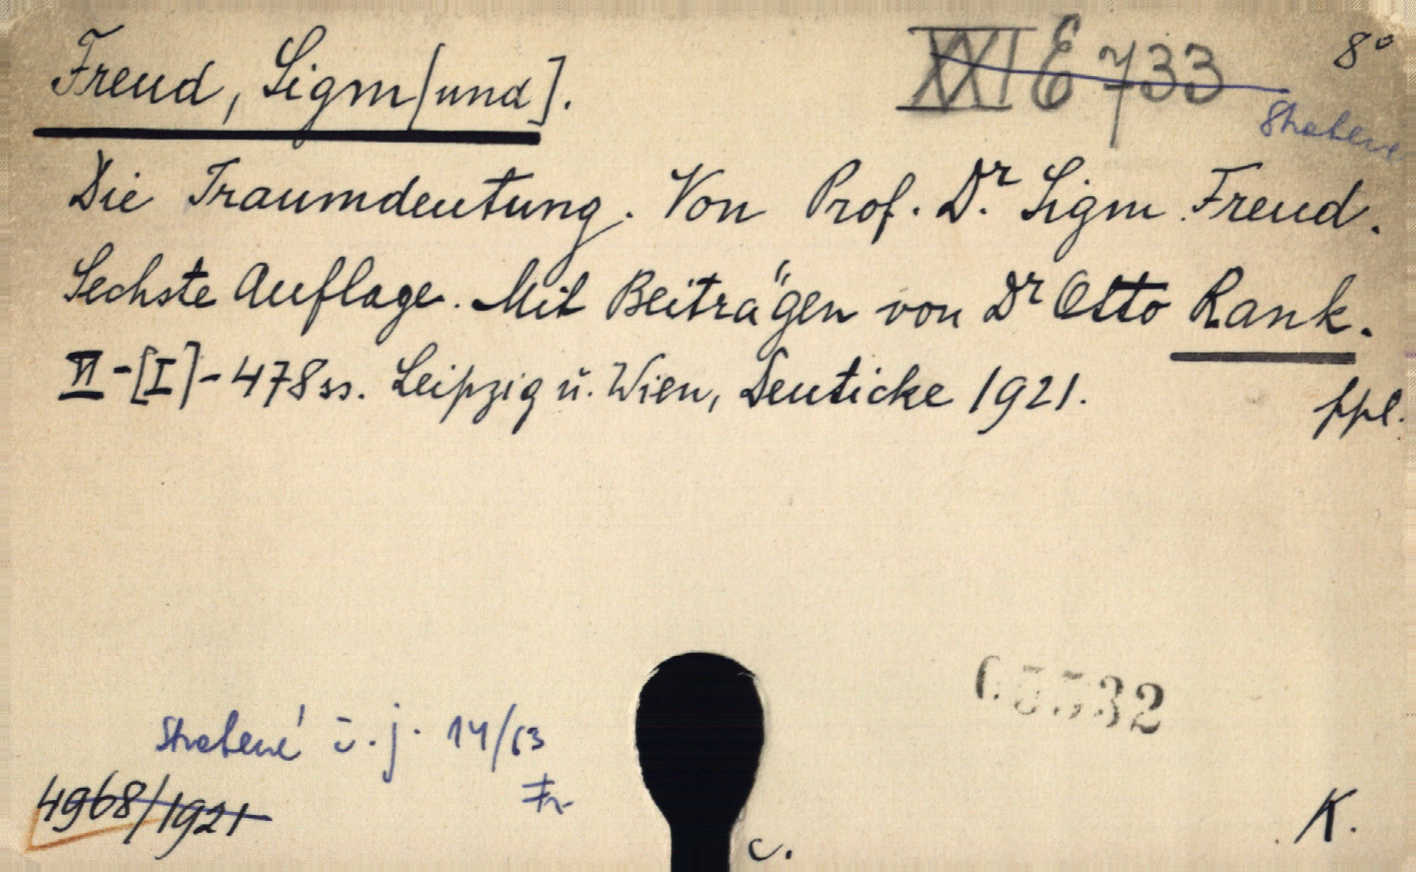 Freud, Sigm[und].
XXI E 733
8°
Shabené
Die Traumdeutung. Von Prof. Dr. Sigm. Freud.
Sechste Auflage. Mit Beiträgen von Dr Otto Rank.
VI-[I]-478 ss. Leipzig u. Wien, Deuticke 1921.
ppl.
65532
Shabené č. j. 14/63
Fr
4968/1921
c.
K.